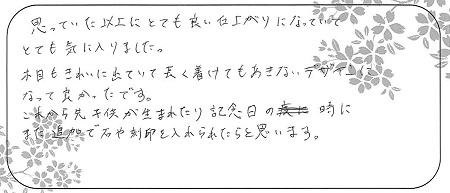 思っていた以上にとても良い仕上がりになっていて
とても気に入りました。
木目もきれいに出ていて長く着けてもあきないデザインに
なって良かったです。
これから先子供が生まれたり記念日の時に
また追加で石や刻印を入れられたらと思います。